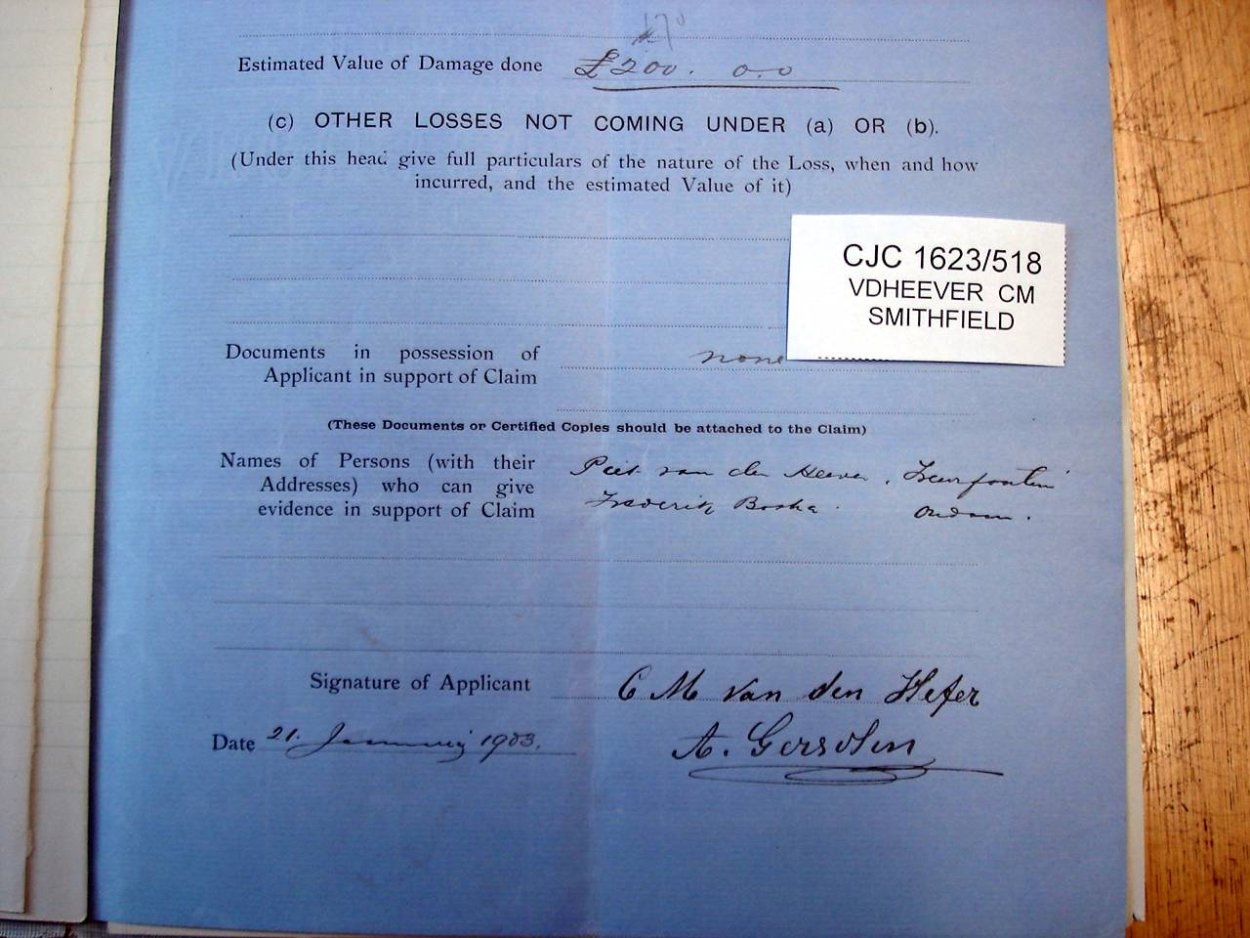 Estimated Value of Damage done £200. 0.0
(c) OTHER LOSSES NOT COMING UNDER (a) OR (b).
(Under this head give full particulars of the nature of the Loss, when and how
incurred, and the estimated Value of it)
CJC 1623/518
VDHEEVER CM
SMITHFIELD
Documents in possession of none
Applicant in support of Claim
(These Documents or Certified Copies should be attached to the Claim)
Names of Persons (with their Piet van den Heever,
Addresses) who can give Frederik Bosha.
evidence in support of Claim
Signature of Applicant C M van den Hefer
Date 21. January 1903. A.